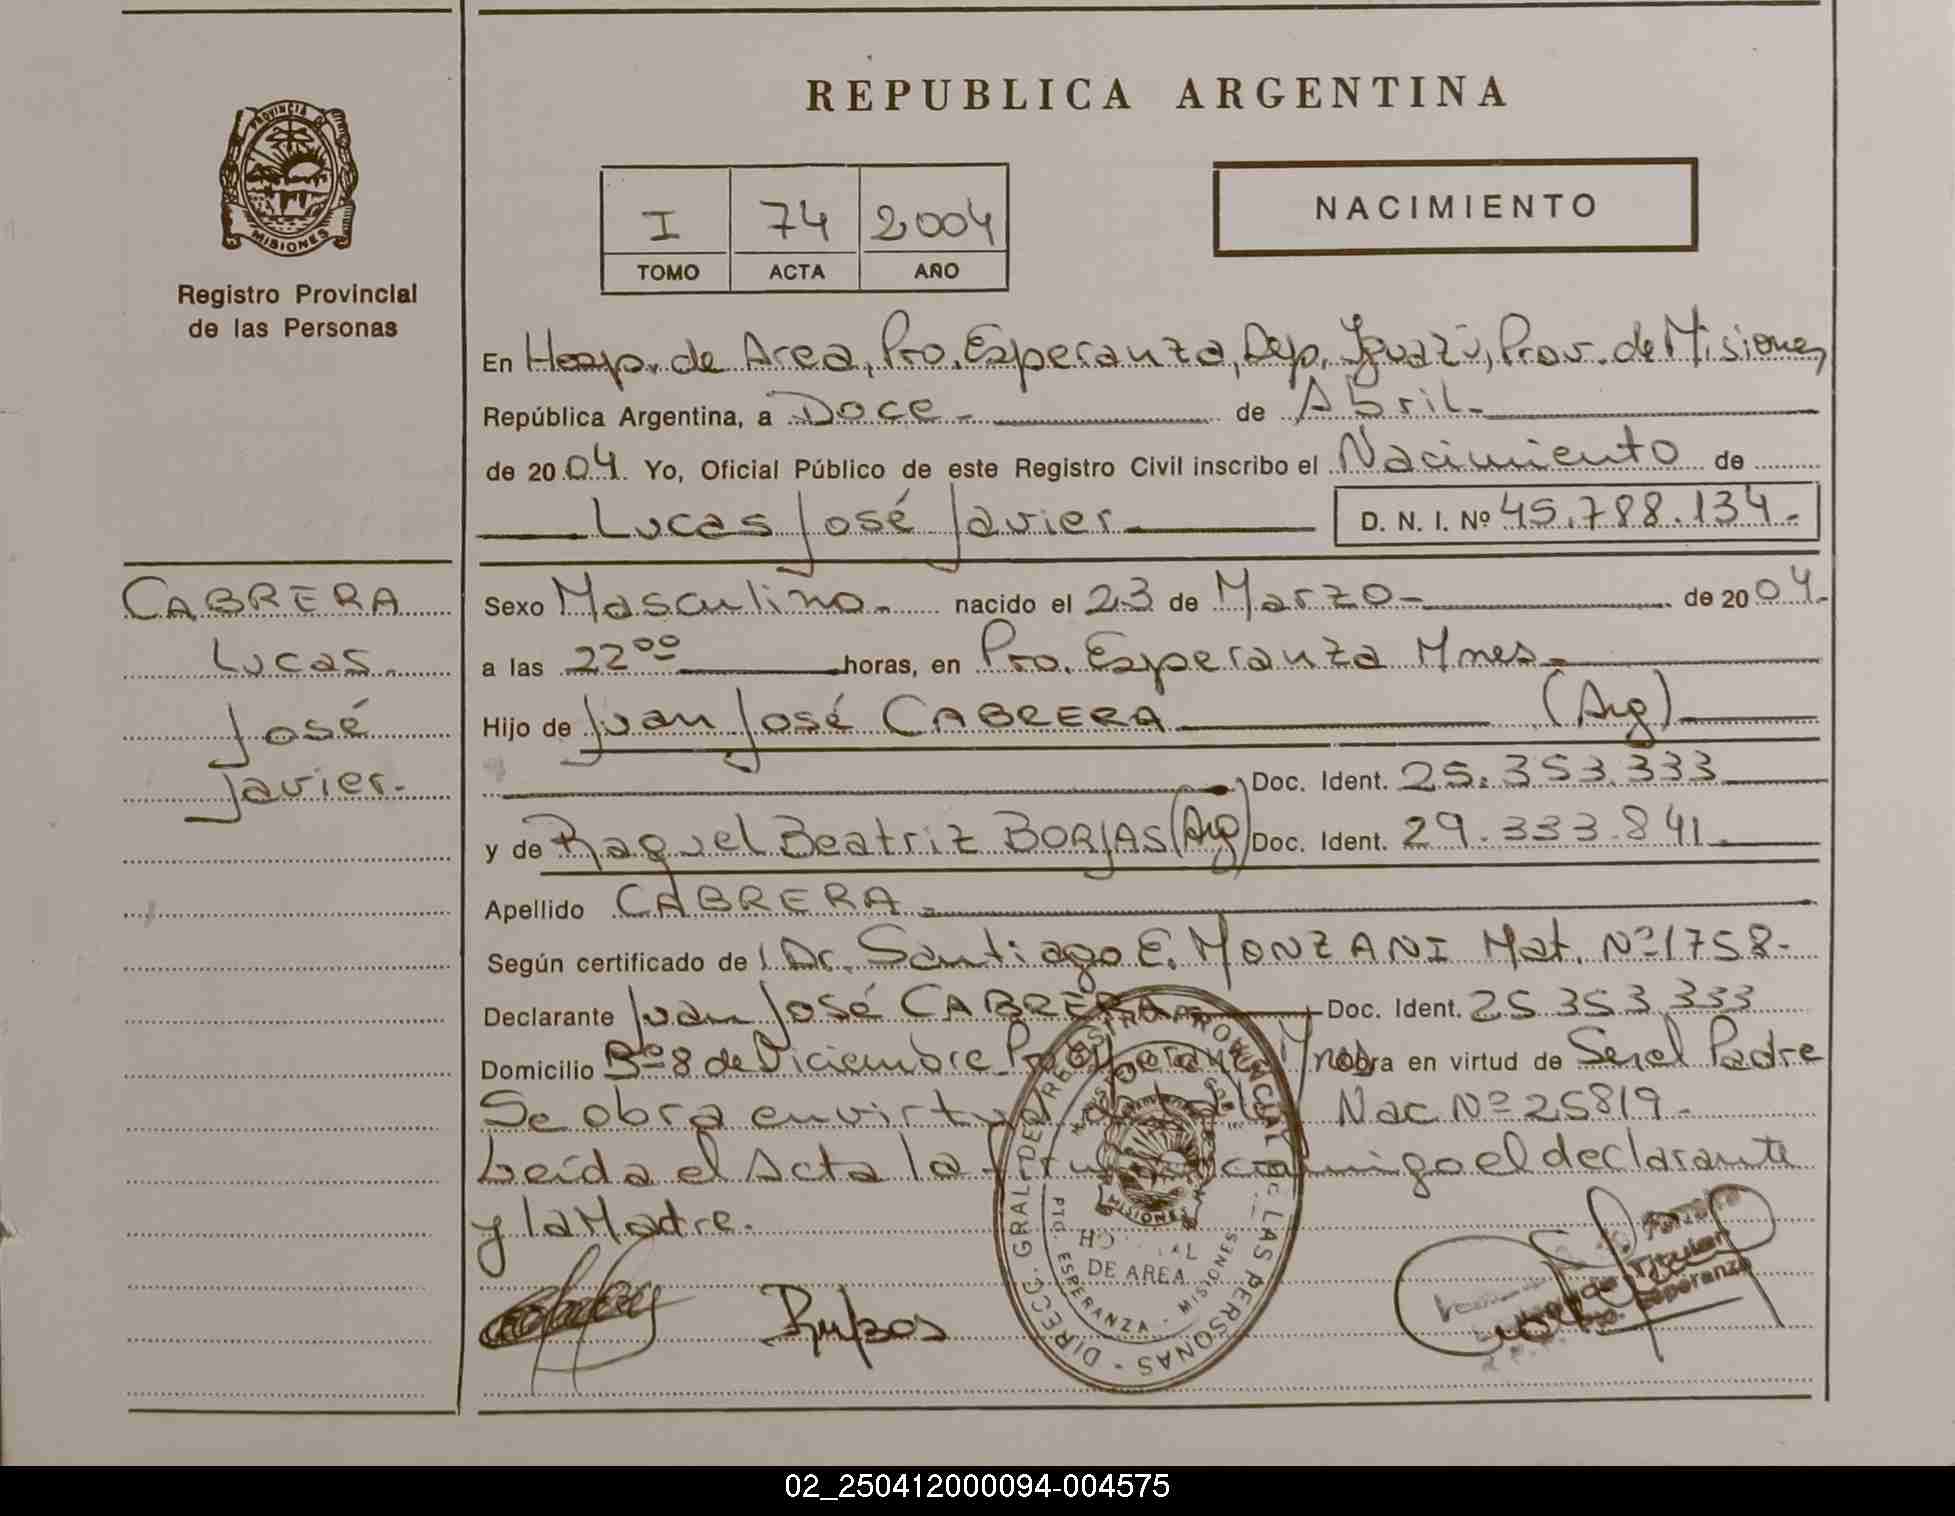 PROVINCIA DE
MISIONES
Registro Provincial
de las Personas
CABRERA
Lucas
José
Javier.
REPUBLICA ARGENTINA
I 74 2004
TOMO ACTA AÑO
NACIMIENTO
En Hosp. de Area, Pto. Esperanza, Dep. Iguazú, Prov. de Misiones,
República Argentina, a Doce - de Abril -
de 20 04. Yo, Oficial Público de este Registro Civil inscribo el Nacimiento de
Lucas José Javier D. N. I. Nº 45.788.134.-
Sexo Masculino.- nacido el 23 de Marzo - de 20 04.-
a las 22⁰⁰ horas, en Pto. Esperanza Mnes.-
Hijo de Juan José CABRERA (Arg)
Doc. Ident. 25.353.333
y de Raquel Beatriz BORJAS (Arg) Doc. Ident. 29.333.841.
Apellido CABRERA.-
Según certificado de Dr. Santiago E. MONZANI Mat. Nº 1758-
Declarante Juan José CABRERA Doc. Ident. 25 353 333
Domicilio Bº 8 de Diciembre Pto Esperanza Mnes obra en virtud de Ser el Padre
Se obra en virtud de la Ley Nac Nº 25819.-
Leída el Acta la firma conmigo el declarante
y la Madre.
DIRECC. GRAL. DEL REGISTRO PROVINCIAL DE LAS PERSONAS
MISIONES
HOSPITAL
DE AREA
PTO. ESPERANZA - MISIONES
Titular
Pto. Esperanza
02_250412000094-004575